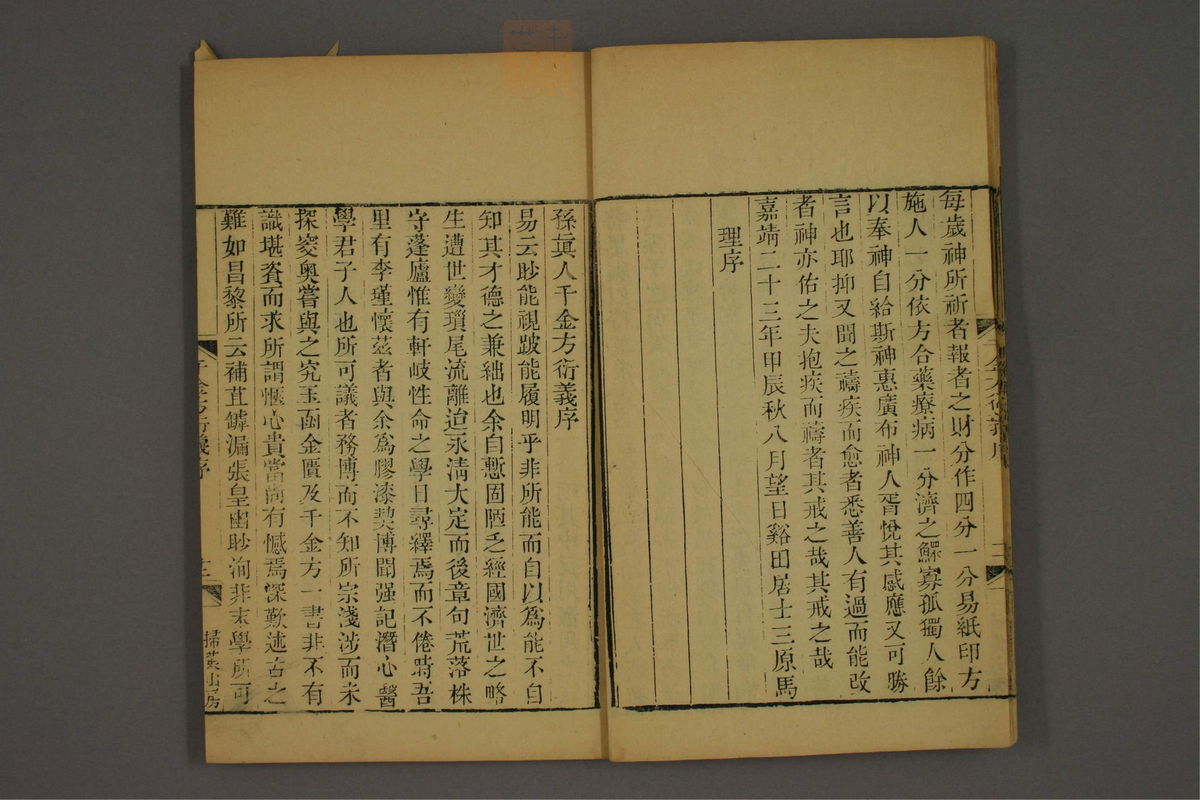 每歲神所祈者報者之財分作四分一分易紙印方
施人一分依方合藥療病一分濟之鰥寡孤獨人餘
以奉神自給斯神惠廣布神人胥悅其感應又可勝
言也耶抑又聞之禱疾而愈者悉善人有過而能改
者神亦佑之夫抱疾而禱者其戒之哉其戒之哉
嘉靖二十三年甲辰秋八月望日谿田居士三原馬
理序
孫眞人千金方衍義序
易云眇能視跛能履明乎非所能而自以爲能不自
知其才德之兼絀也余自慙固陋乏經國濟世之略
生遭世變瑣尾流離迨永淸大定而後章句荒落株
守蓬廬惟有軒岐性命之學日尋繹焉而不倦時吾
里有李瑾懷茲者與余爲膠漆契博聞强記潛心醫
學君子人也所可議者務博而不知所宗淺涉而未
探窔奧嘗與之究玉函金匱及千金方一書非不有
識堪資而求所謂愜心貴當尚有憾焉深歎述古之
難如昌黎所云補苴罅漏張皇幽眇洵非末學所可
千金方衍義序
三
掃葉山房